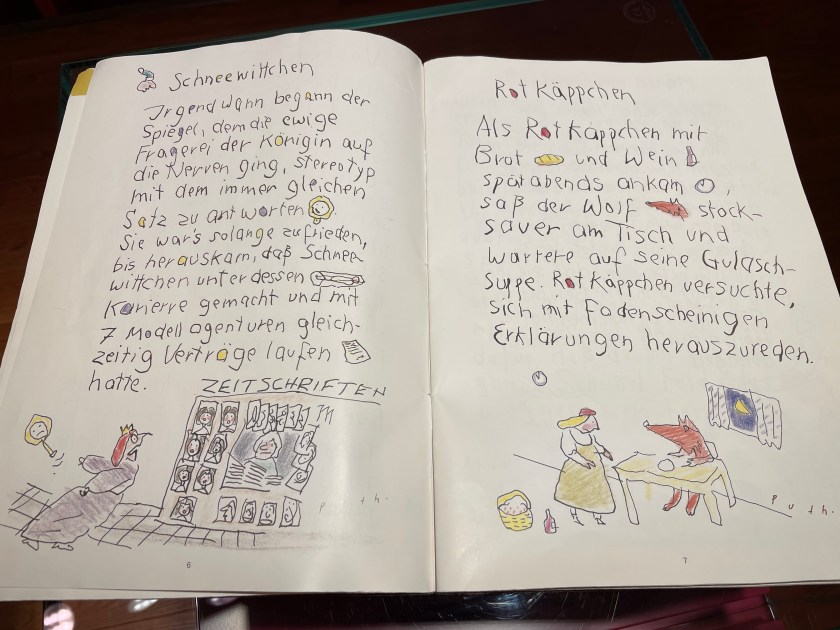 Schneewittchen
Irgendwann begann der
Spiegel, dem die ewige
Fragerei der Königin auf
die Nerven ging, stereotyp
mit dem immer gleichen
Satz zu antworten
Sie war's solange zufrieden,
bis herauskam, daß Schnee-
wittchen unterdessen
Karierre gemacht und mit
7 Modell agenturen gleich-
zeitig Verträge laufen
hatte.
ZEITSCHRIFTEN
Puth.
6
Rotkäppchen
Als Rotkäppchen mit
Brot und Wein
spätabends ankam ,
saß der Wolf stock-
sauer am Tisch und
wartere auf seine Gulasch-
suppe. Rotkäppchen versuchte,
sich mit fadenscheinigen
Erklärungen herauszureden.
Puth.
7